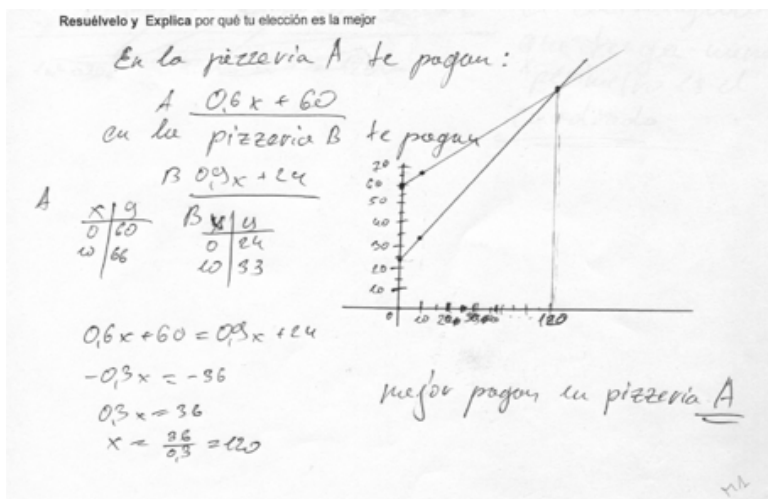 Resuélvelo y Explica por qué tu elección es la mejor
En la pizzeria A te pagan:
A 0,6x + 60
en la pizzaria B te pagan
B 0,9x + 24
A
x | y
0 | 60
10 | 66
B
x | y
0 | 24
10 | 33
70
60
50
40
30
20
10
0 10 20 30 40 120
0,6x + 60 = 0,9x + 24
-0,3x = -36
0,3x = 36
x = 36/0,3 = 120
mejor pagan en pizzeria A